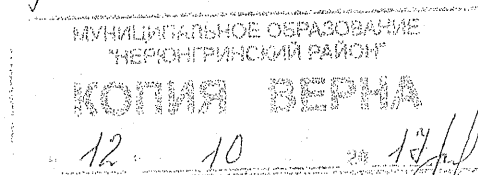 МУНИЦИПАЛЬНОЕ ОБРАЗОВАНИЕ
"НЕРЮНГРИНСКИЙ РАЙОН"
КОПИЯ ВЕРНА
12 10 20 17